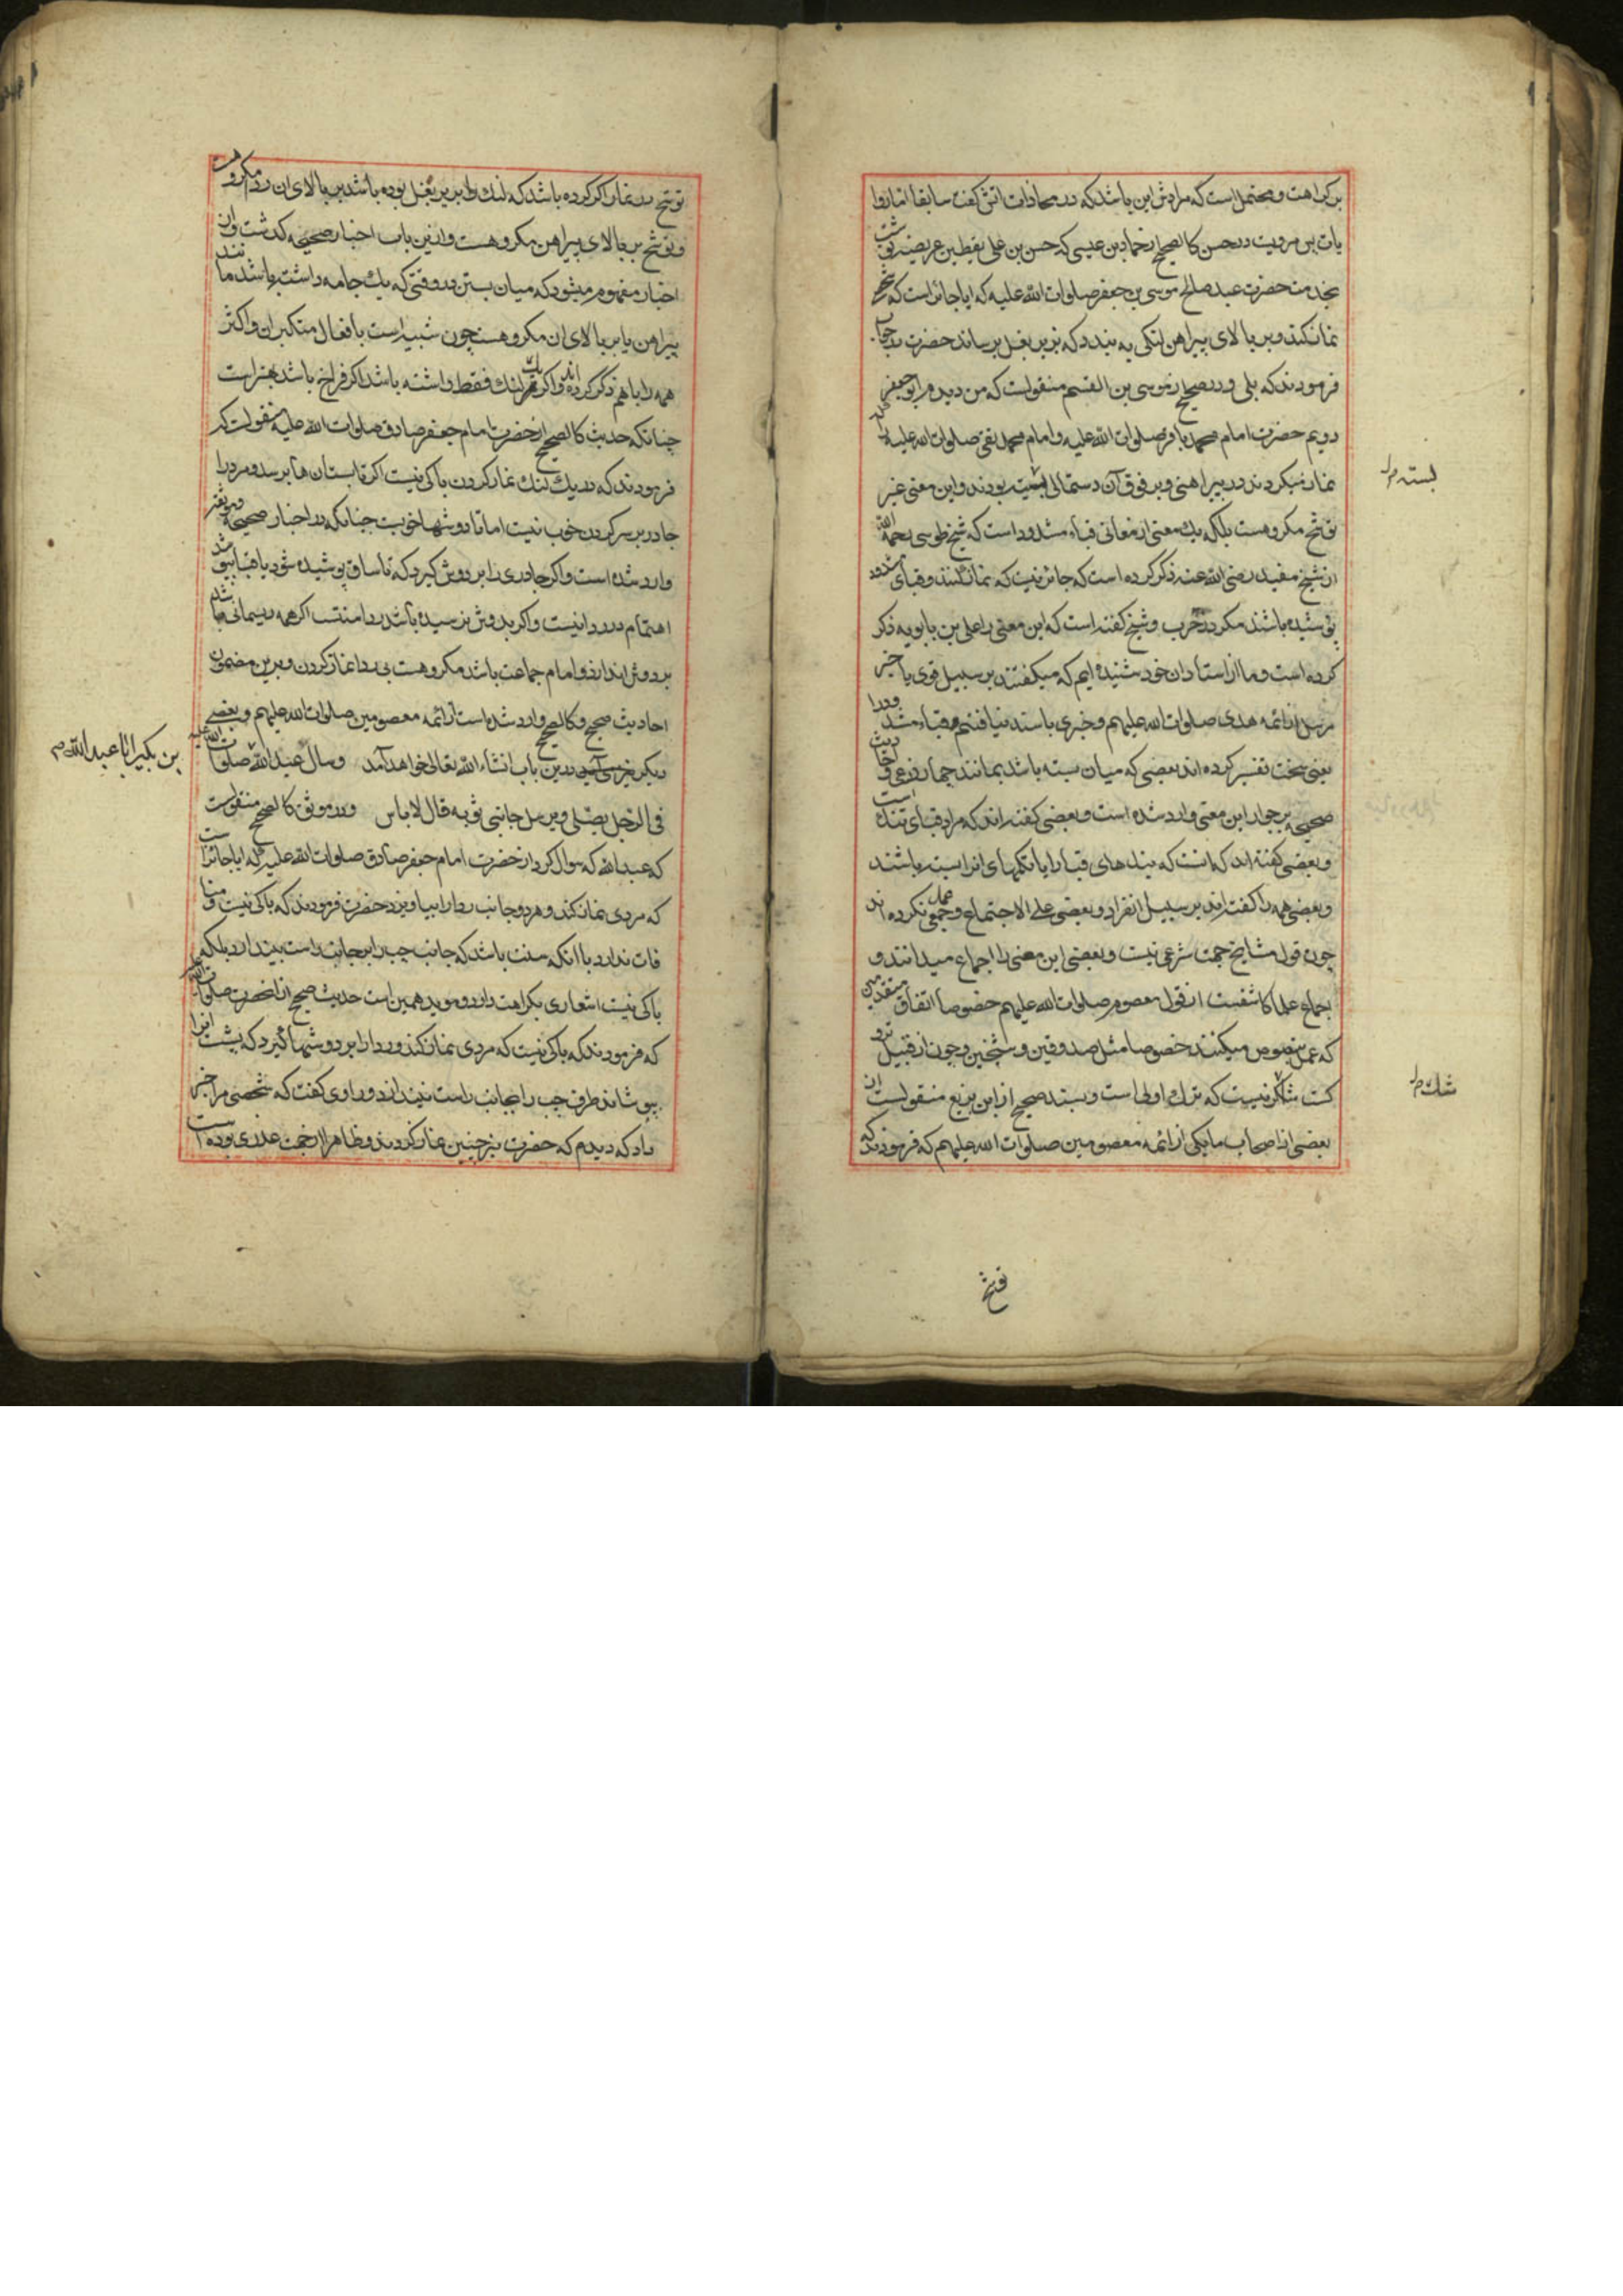 بر کراهت و محتمل است که مرادش این باشد که در محاذات آتش گفت سابقا اما روا
یات پس مرویست در حسن کالصحیح از حماد بن عیسی که حسن بن علی یقطین عریضه نوشت
بخدمت حضرت عبد صالح موسی بن جعفر صلوات الله علیه که ایا جایز است که شخصی
نماز کند و بر بالای پیراهن لنکی به بندد که بزیر بغل برساند حضرت در جواب
فرمودند که بلی و در صحیح از موسی بن القسم منقولست که من دیدم ابو جعفر
دویم حضرت امام محمد باقر صلوات الله علیه و امام محمد تقی صلوات الله علیه را که
نماز میکردند در پیراهنی و بر فوق آن دستمالی بودند و این معنی غیر
توشح مکروهست بلکه یک معنی از معانی قباء مشدود است که شیخ طوسی رحمه الله
از شیخ مفید رضی الله عنه ذکر کرده است که جایز نیست که نماز کنند و قبای مشدود
پوشیده باشند مکر در حرب و شیخ گفته است که این معنی را علی بن بابویه ذکر
کرده است و ما از استادان خود شنیده ایم که میکفتند بر سبیل فتوی یا خبر
مرسل از ائمه هدی صلوات الله علیهم و خبری باسند نیافتیم و قباء مشدود را
بعنی سخت تفسیر کرده اند بعضی که میان بسته باشد بمانند جمار وزعی و احادیث
صحیحه بر جواز این معنی وارد شده است و بعضی کفته اند که مراد قبای تنک است
و بعضی کفته اند که انست که بندهای قبا را یا تکمهای انرا بسته باشند
و بعضی همه را کفته اند بر سبیل انفراد و بعضی علی الاجتماع و جمعی عمل نکرده اند
چون قول مشایخ حجت شرعی نیست و بعضی این معنی را اجماع میدانند و
اجماع علما کاشفست از قول معصوم صلوات الله علیهم خصوصا اتفاق متقدمین
که عمل بنصوص میکنند خصوصا مثل صدوقین و شیخین و چون از قبیل ترو
کست شکی نیست که ترک اولی است و بسند صحیح از ابن بزیع منقولست از
بعضی از اصحاب ما یکی از ائمه معصومین صلوات الله علیهم که فرمودند که
بسته
شک
توشح
توشح در نماز اکر کرده باشد که لنک را بر زیر بغل بوده باشد بر بالای ان رد مکروهست
و توشح بر بالای پیراهن مکروهست و از این باب اخبار صحیحه کذشت و از
اخبار مفهوم میشود که میان بستن در وقتی که یک جامه داشته باشد مانند
پیراهن یا بر بالای ان مکروهست چون شبیه است بافعال متکبران و اکثر
همه را باهم ذکر کرده اند و اکر یک لنک فقط داشته باشد اکر فراخ باشد بهتر است
چنانکه حدیث کالصحیح از حضرت امام جعفر صادق صلوات الله علیه منقولست که
فرمودند که در یک لنک نماز کردن باکی نیست اکر تا بستان ها برسد و مرد را
چادر بر سر کردن خوب نیست اما تا دوشها خوبست چنانکه در اخبار صحیحه
وارد شده است و اکر چادری را بر دوش کیرد که تا ساق پوشیده شود یا قبا بپوشد
اهتمام در ردا نیست و اکر بدوش نرسیده باشد ردا سنتست اکر همه ریسمانی باشد
بر دوش اندازد و امام جماعت باشد مکروهست بی ردا نماز کردن و بر این مضمون
احادیث صحیح و کالصحیح وارد شده است از ائمه معصومین صلوات الله علیهم و بعضی
دیکر نیز در این باب انشاء الله تعالی خواهد آمد و سأل عبد الله صلوات الله علیه
فی الرجل یصلی و یرسل جانبی ثوبه قال لا باس و در موثق کالصحیح منقولست
که عبدالله که سوال کرد از حضرت امام جعفر صادق صلوات الله علیه که ایا جایز است
که مردی نماز کند و هر دو جانب ردا را بیاویزد حضرت فرمودند که باکی نیست و منا
فات ندارد با انکه سنت باشد که جانب چپ را بر جانب راست بیندازد بلکه
باکی نیست اشعاری بکراهت دارد و موید همین است حدیث صحیح از انحضرت صلوات الله علیه
که فرمودند که باکی نیست که مردی نماز کند و ردا را بر دوشها کیرد که پشت انرا
بپوشاند و طرف چپ را بجانب راست نیندازد و راوی کفت که شخصی مرا خبر
داد که دیدم که حضرت نیز چنین نماز کردند و ظاهرا از جهت عذری بوده است
بن بکیر ابا عبد الله